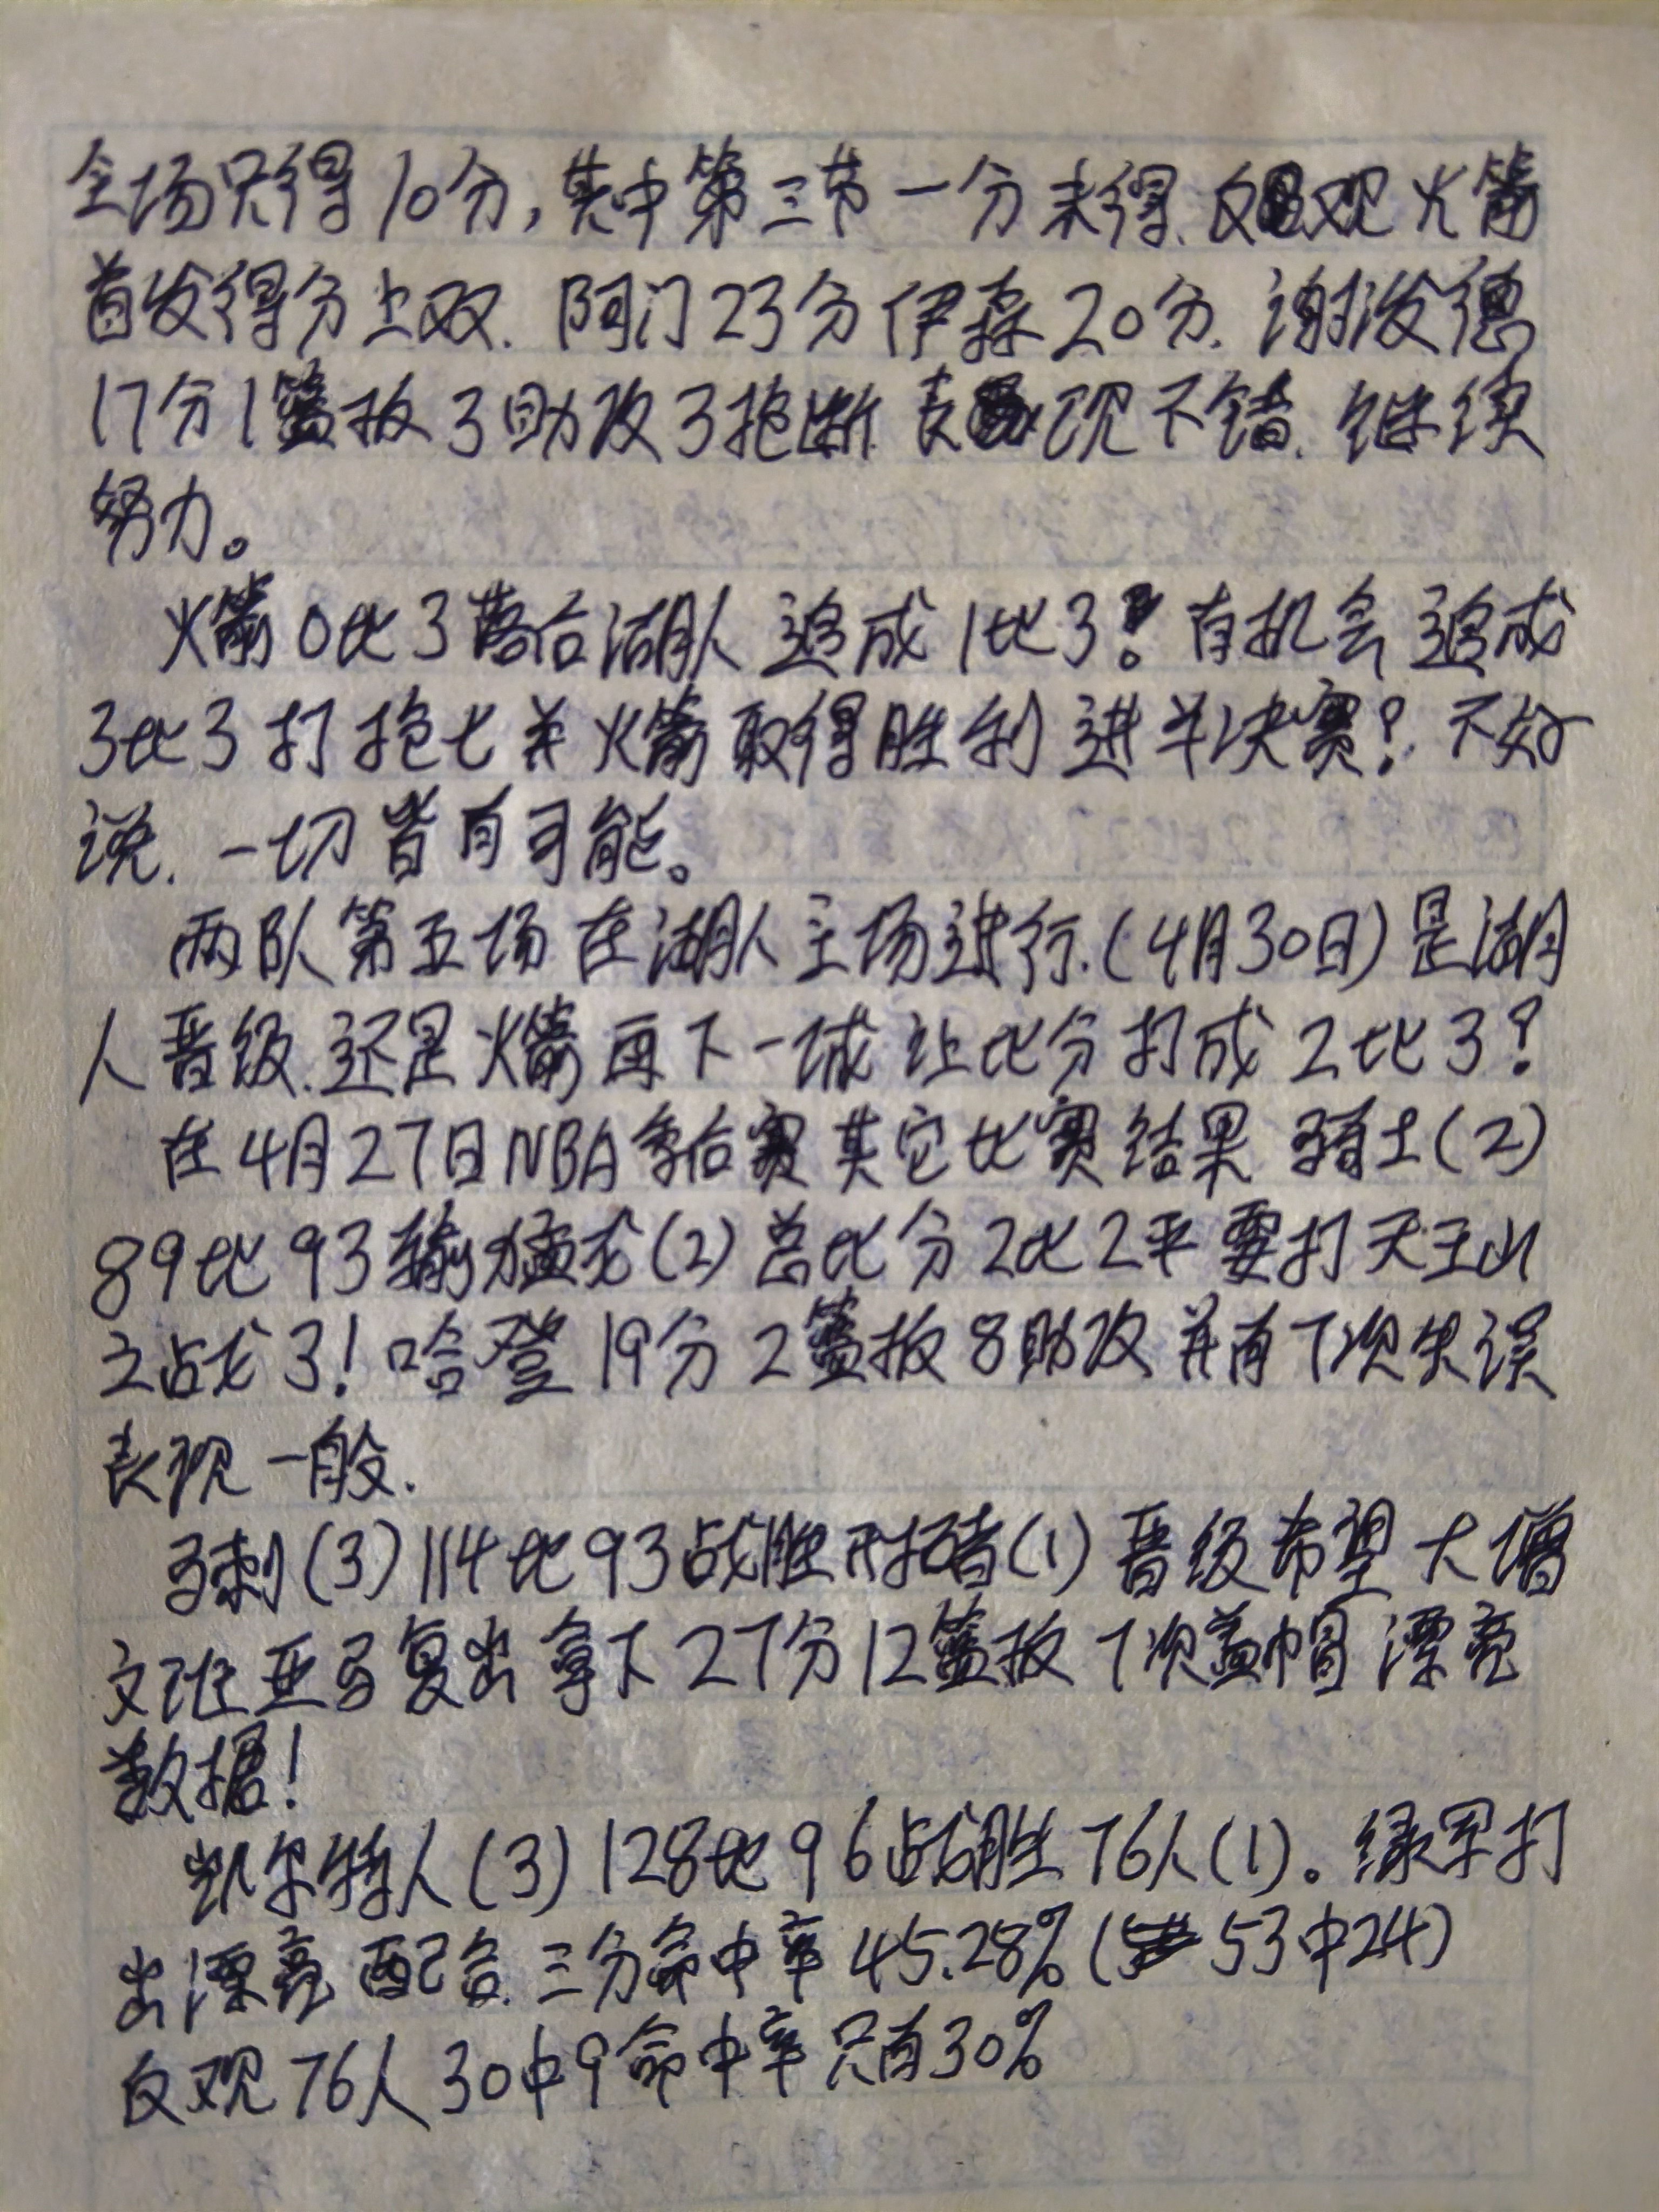 全场只得10分,其中第三节一分未得.反观火箭
首发得分上双.阿门23分伊森20分.谢泼德
17分1篮板3助攻3抢断表现不错.继续
努力。
火箭0比3落后湖人追成1比3!有机会追成
3比3打抢七并火箭取得胜利进半决赛?不好
说.一切皆有可能。
两队第五场在湖人主场进行.(4月30日)是湖
人晋级.还是火箭再下一城让比分打成2比3?
在4月27日NBA季后赛其它比赛结果骑士(2)
89比93输猛龙(2)总比分2比2平要打天王山
之战了!哈登19分2篮板8助攻并有7次失误
表现一般.
马刺(3)114比93战胜开拓者(1)晋级希望大增
文班亚马复出拿下27分12篮板7次盖帽漂亮
数据!
凯尔特人(3)128比96战胜76人(1)。绿军打
出漂亮配合.三分命中率45.28%(53中24)
反观76人30中9命中率只有30%